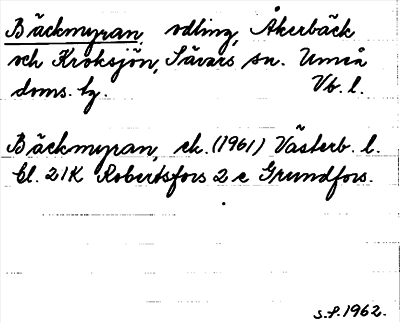 Bäckmyran, odling, Åkerbäck
och Kroksjön, Sävars sn. Umeå
doms. hg. Vb. l.
Bäckmyran, ek. (1961) Västerb. l.
bl. 21K Robertsfors 2 c Grundfors.
S.F. 1962.